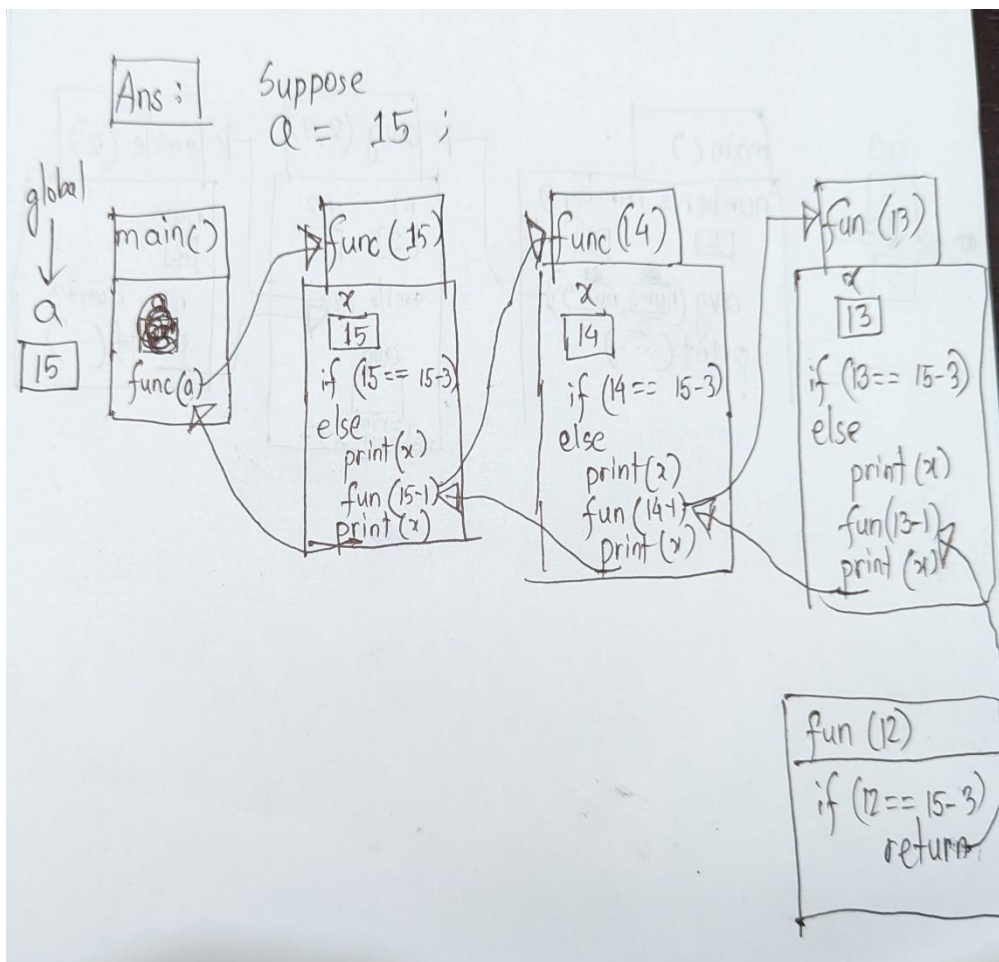 Ans :
Suppose
a = 15 ;
global
a
15
main()
func(a)
func(15)
x
15
if (15 == 15-3)
else
print(x)
fun (15-1)
print(x)
func(14)
x
14
if (14 == 15-3)
else
print(x)
fun (14-1)
print(x)
fun (13)
x
13
if (13 == 15-3)
else
print(x)
fun(13-1)
print (x)
fun (12)
if (12 == 15-3)
return